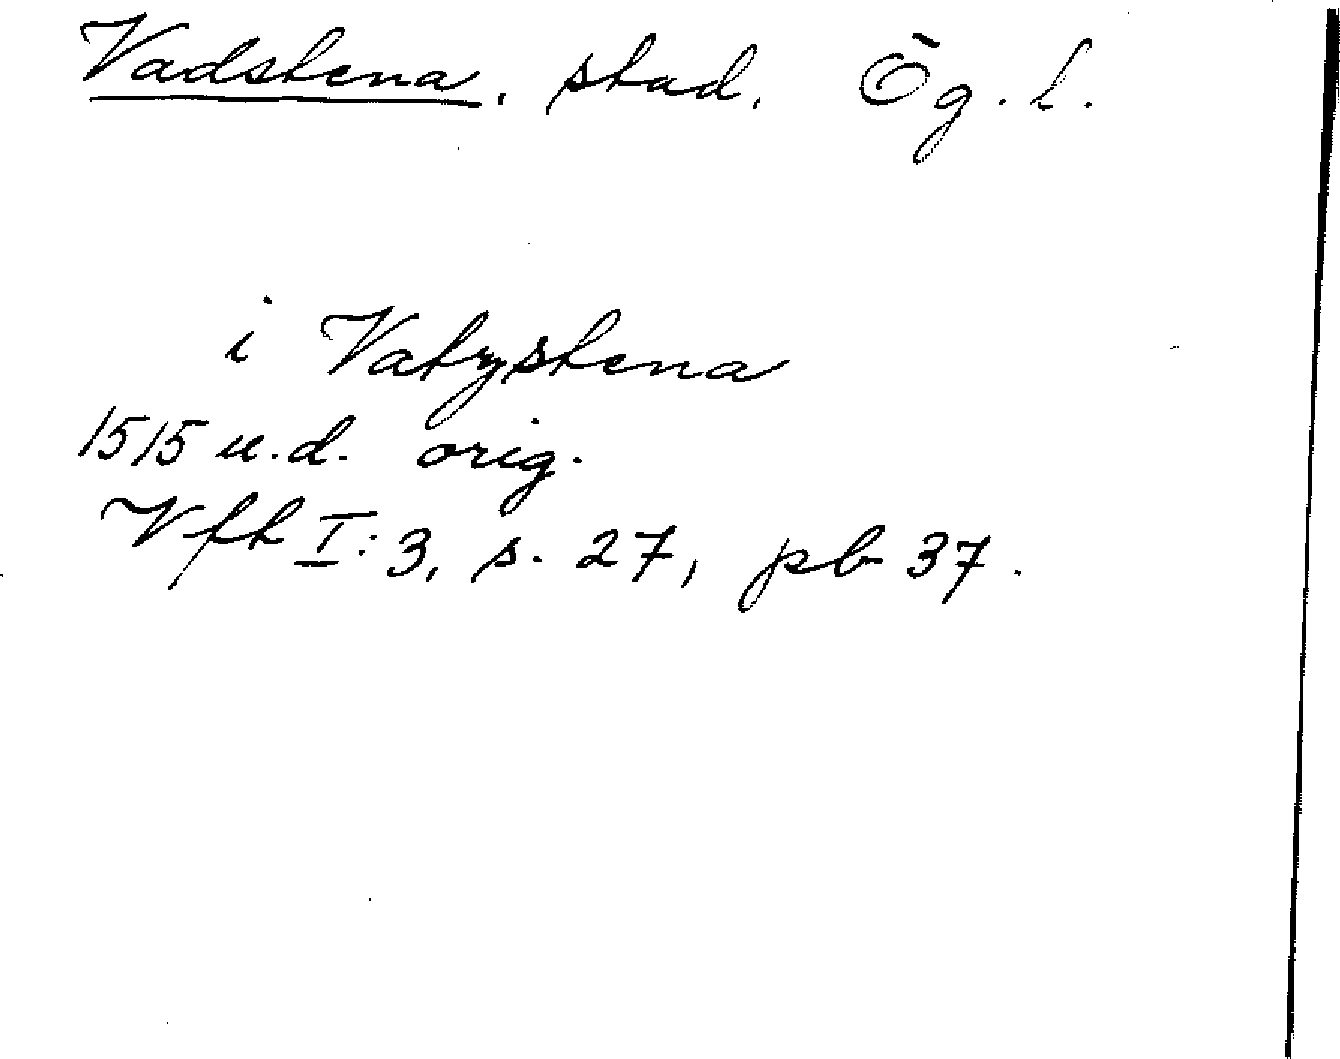 Vadstena, stad. Ög. l.
i Vatzstena
1515 u.d. orig.
Vfk I:3, s. 27, pb 37.